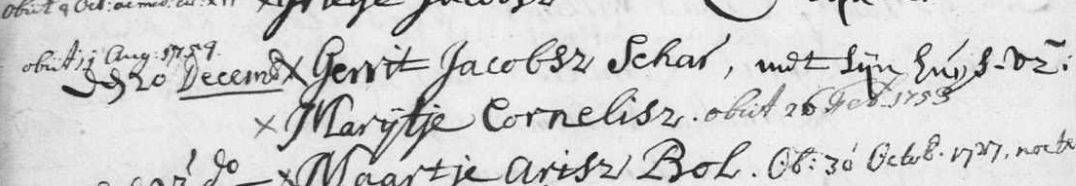 × Jacobsz
obiit 11 Aug: 1759.
den 20 Decemb × Gerrit Jacobsz Schar, mět sijn huijs-vr:
× Marijtje Cornelisz. obiit 26 Feb. 1753
do × Maartje Arisz Bol. Ob: 30 Octob. 1727, nocte